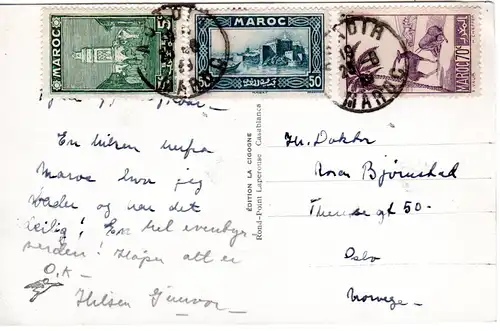 MAROC
MAROC
50
MAROC 70c
MAROC
En hilsen herfra
Maroc hvor jeg
bader og har det
deilig! En hel eventyr-
verden! Håper alt er
O.K –
Hilsen Gunvor –
ÉDITION LA CIGOGNE
Rond-Point Laperouse - Casablanca
Hr. Doktor
Bjørnstad
gt 50 -
Oslo
Norvege -